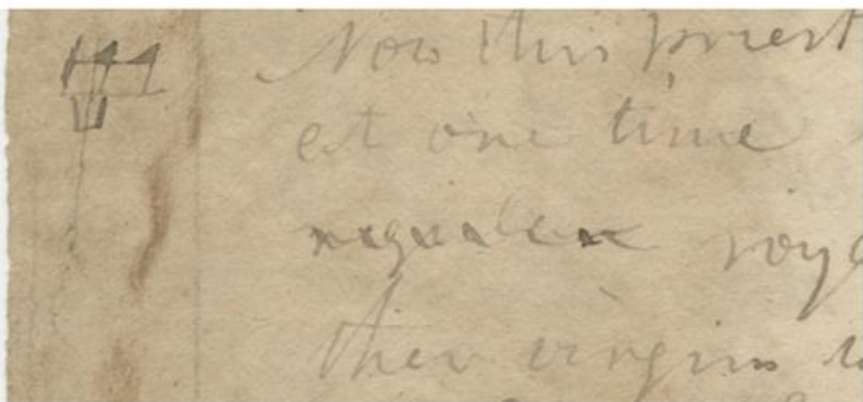 Now this priest
at one time
regular roy
virgins